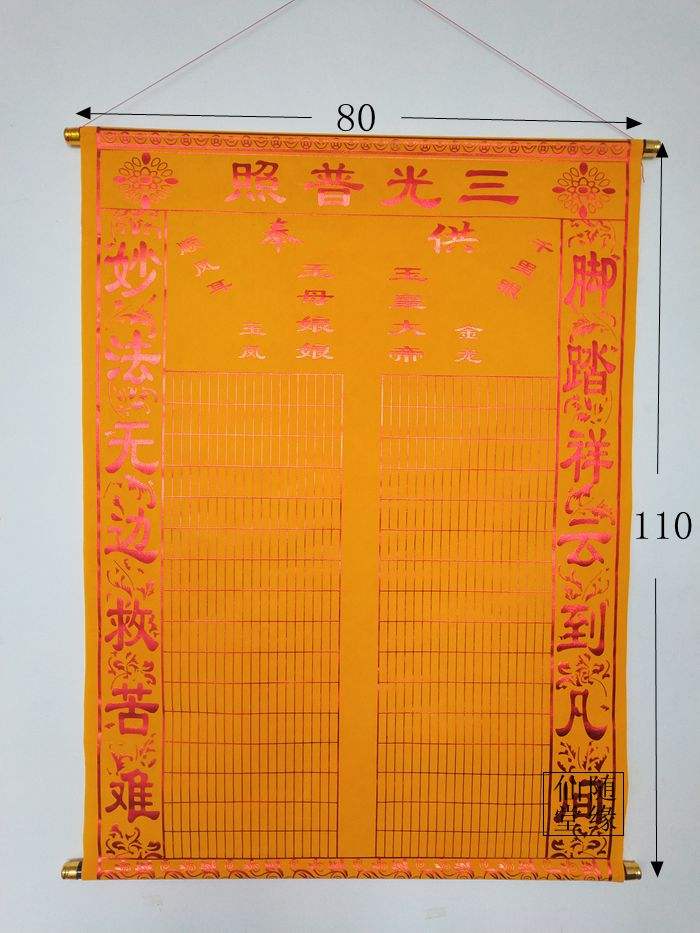 80
三光普照
供奉
千里眼
金龙
玉皇大帝
王母娘娘
玉凤
顺风耳
脚踏祥云到凡间
妙法无边救苦难
110
随缘
仙堂